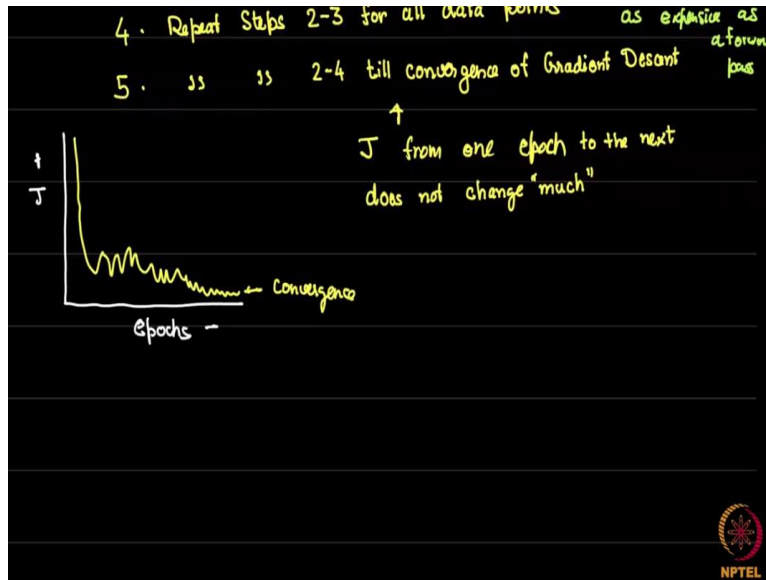 4. Repeat Steps 2-3 for all data points
as expensive as
a forwar
pass
5. " " 2-4 till convergence of Gradient Desant
J from one epoch to the next
does not change "much"
J
convergence
epochs
NPTEL